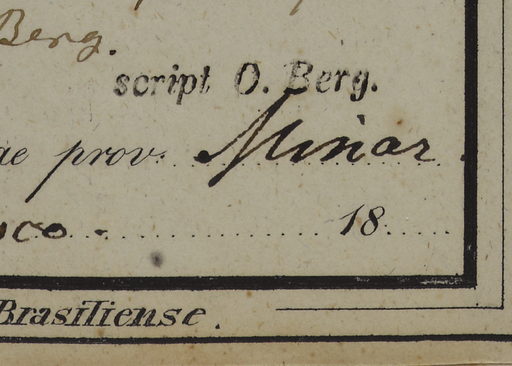 Berg.
script O. Berg.
ae prov. Minar
18
Brasiliense.